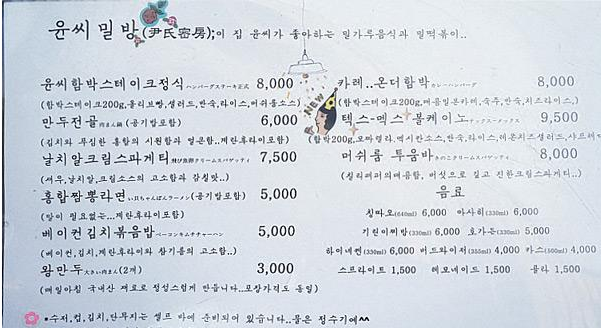 윤씨 밀방(尹氏密房);이 집 윤씨가 좋아하는 밀가루음식과 밀떡볶이..
윤씨함박스테이크정식 ハンバーグステーキ正式 8,000
(함박스테이크200g,올리브빵,샐러드,반숙,라이스,머쉬룸소스)
만두전골 肉まん鍋 (공기밥포함) 6,000
(김치와 푸짐한 홍합의 시원함과 얼큰함..계란후라이포함)
날치알크림스파게티 飛び魚卵クリームスパゲッティ 7,500
(새우,날치알,크림소스의 고소함과 감칠맛..)
홍합짬뽕라면 い貝ちゃんぽんラーメン(공기밥포함) 5,000
(말이 필요없는...계란후라이포함)
베이컨김치볶음밥 ベーコンキムチチャーハン 5,000
(베이컨,김치,계란후라이와 참기름의 고소함..)
왕만두 大きい肉まん(2개) 3,000
(매일아침 국내산 재료로 정성스럽게 만듭니다..포장가격도 동일)
카레..온더함박 カレーハンバーグ 8,000
(함박스테이크200g,매콤일본카레,숙주,반숙,치즈라이스,)
NEW
텍스-멕스 볼케이노 テックスーメックス 9,500
(함박200g,또띠아,멕시칸소스,반숙,라이스,레몬치즈샐러드,
머쉬룸 투움바 きのこクリームスパゲッティ 8,000
(칠리페퍼의매콤함, 버섯으로 깊고 진한크림스파게티..)
음료
칭따오(640ml) 6,000 아사히(330ml) 6,000
기린이찌방(330ml) 6,000 호가든(330ml) 5,000
하이네켄(330ml) 6,000 버드와이저(355ml) 4,000 카스(500ml) 4,000
스프라이트 1,500 레모네이드 1,500 콜라 1,500
*수저,컵,김치,단무지는 셀프 바에 준비되어 있습니다..물은 정수기에^^